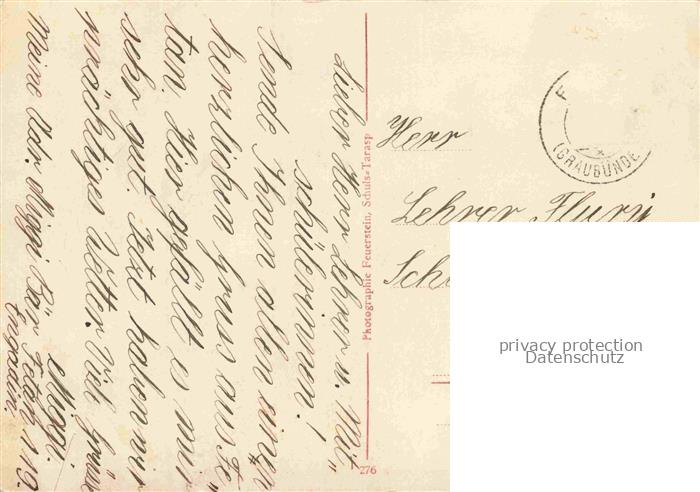 Lieber Herr Lehrer u. Mit„
schülerinnen!
Sende Ihnen allen einen
herzlichen Gruss aus Fe„
tan. Hier gefällt es mir
sehr gut. Jetzt haben wir
prächtiges Wetter. Viele Grüsse
Miggi.
Meine Adr. Miggi Bär Fetan 119.
Engadin.
Photographie Feuerstein, Schuls-Tarasp
276
Herr
Lehrer Flury
(GRAUBÜNDE
privacy protection
Datenschutz